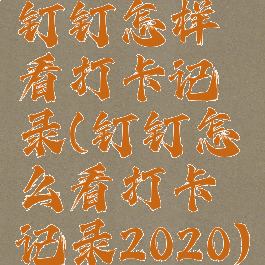 钉钉怎样
看打卡记
录(钉钉怎
么看打卡
记录2020)